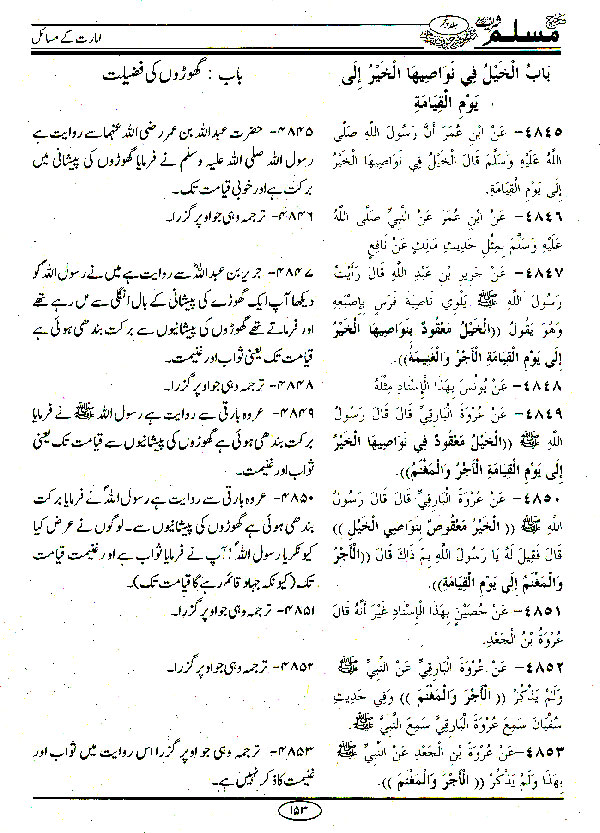 صحیح مسلم شریف جلد پنجم
امارت کے مسائل
بَابُ الْخَيْلُ فِي نَوَاصِيهَا الْخَيْرُ إِلَى
يَوْمِ الْقِيَامَةِ
٤٨٤٥- عَنْ ابْنِ عُمَرَ أَنَّ رَسُولَ اللهِ صَلَّى
اللهُ عَلَيْهِ وَسَلَّمَ قَالَ الْخَيْلُ فِي نَوَاصِيهَا الْخَيْرُ
إِلَى يَوْمِ الْقِيَامَةِ.
٤٨٤٦- عَنْ ابْنِ عُمَرَ عَنْ النَّبِيِّ صَلَّى اللهُ
عَلَيْهِ وَسَلَّمَ بِمِثْلِ حَدِيثِ مَالِكٍ عَنْ نَافِعٍ
٤٨٤٧- عَنْ جَرِيرِ بْنِ عَبْدِ اللهِ قَالَ رَأَيْتُ
رَسُولَ اللهِ ﷺ يَلْوِي نَاصِيَةَ فَرَسٍ بِإِصْبَعِهِ
وَهُوَ يَقُولُ ((الْخَيْلُ مَعْقُودٌ بِنَوَاصِيهَا الْخَيْرُ
إِلَى يَوْمِ الْقِيَامَةِ الْأَجْرُ وَالْغَنِيمَةُ)).
٤٨٤٨- عَنْ يُونُسَ بِهَذَا الْإِسْنَادِ مِثْلَهُ
٤٨٤٩- عَنْ عُرْوَةَ الْبَارِقِيِّ قَالَ قَالَ رَسُولُ
اللهِ ﷺ ((الْخَيْلُ مَعْقُودٌ فِي نَوَاصِيهَا الْخَيْرُ
إِلَى يَوْمِ الْقِيَامَةِ الْأَجْرُ وَالْمَغْنَمُ)).
٤٨٥٠- عَنْ عُرْوَةَ الْبَارِقِيِّ قَالَ قَالَ رَسُولُ
اللهِ ﷺ (( الْخَيْرُ مَعْقُوصٌ بِنَوَاصِي الْخَيْلِ ))
قَالَ فَقِيلَ لَهُ يَا رَسُولَ اللهِ بِمَ ذَاكَ قَالَ ((الْأَجْرُ
وَالْمَغْنَمُ إِلَى يَوْمِ الْقِيَامَةِ)).
٤٨٥١- عَنْ حُصَيْنٍ بِهَذَا الْإِسْنَادِ غَيْرَ أَنَّهُ قَالَ
عُرْوَةُ بْنُ الْجَعْدِ.
٤٨٥٢- عَنْ عُرْوَةَ الْبَارِقِيِّ عَنْ النَّبِيِّ ﷺ
وَلَمْ يَذْكُرْ (( الْأَجْرَ وَالْمَغْنَمَ )) وَفِي حَدِيثِ
سُفْيَانَ سَمِعَ عُرْوَةَ الْبَارِقِيَّ سَمِعَ النَّبِيَّ ﷺ
٤٨٥٣- عَنْ عُرْوَةَ بْنِ الْجَعْدِ عَنْ النَّبِيِّ ﷺ
بِهَذَا وَلَمْ يَذْكُرْ (( الْأَجْرَ وَالْمَغْنَمَ )).
باب : گھوڑوں کی فضیلت
۴۸۴۵- حضرت عبداللہ بن عمر رضی اللہ عنہما سے روایت ہے
رسول اللہ صلی اللہ علیہ وسلم نے فرمایا گھوڑوں کی پیشانی میں
برکت ہے اور خوبی قیامت تک۔
۴۸۴۶- ترجمہ وہی جو اوپر گزرا۔
۴۸۴۷- جریر بن عبداللہؓ سے روایت ہے میں نے رسول اللہؐ کو
دیکھا آپ ایک گھوڑے کی پیشانی کے بال انگلی سے مل رہے تھے
اور فرماتے تھے گھوڑوں کی پیشانیوں سے برکت بندھی ہوئی ہے
قیامت تک یعنی ثواب اور غنیمت۔
۴۸۴۸- ترجمہ وہی جو اوپر گزرا۔
۴۸۴۹- عروہ بارقی سے روایت ہے رسول اللہ ﷺ نے فرمایا
برکت بندھی ہوئی ہے گھوڑوں کی پیشانیوں سے قیامت تک یعنی
ثواب اور غنیمت۔
۴۸۵۰- عروہ بارقی سے روایت ہے رسول اللہؐ نے فرمایا برکت
بندھی ہوئی ہے گھوڑوں کی پیشانیوں سے۔ لوگوں نے عرض کیا
کیونکر یا رسول اللہؐ! آپ نے فرمایا ثواب ہے اور غنیمت قیامت
تک (کیونکہ جہاد قائم رہے گا قیامت تک)۔
۴۸۵۱- ترجمہ وہی جو اوپر گزرا۔
۴۸۵۲- ترجمہ وہی جو اوپر گزرا۔
۴۸۵۳- ترجمہ وہی جو اوپر گزرا اس روایت میں ثواب اور
غنیمت کا ذکر نہیں ہے۔
۱۵۳